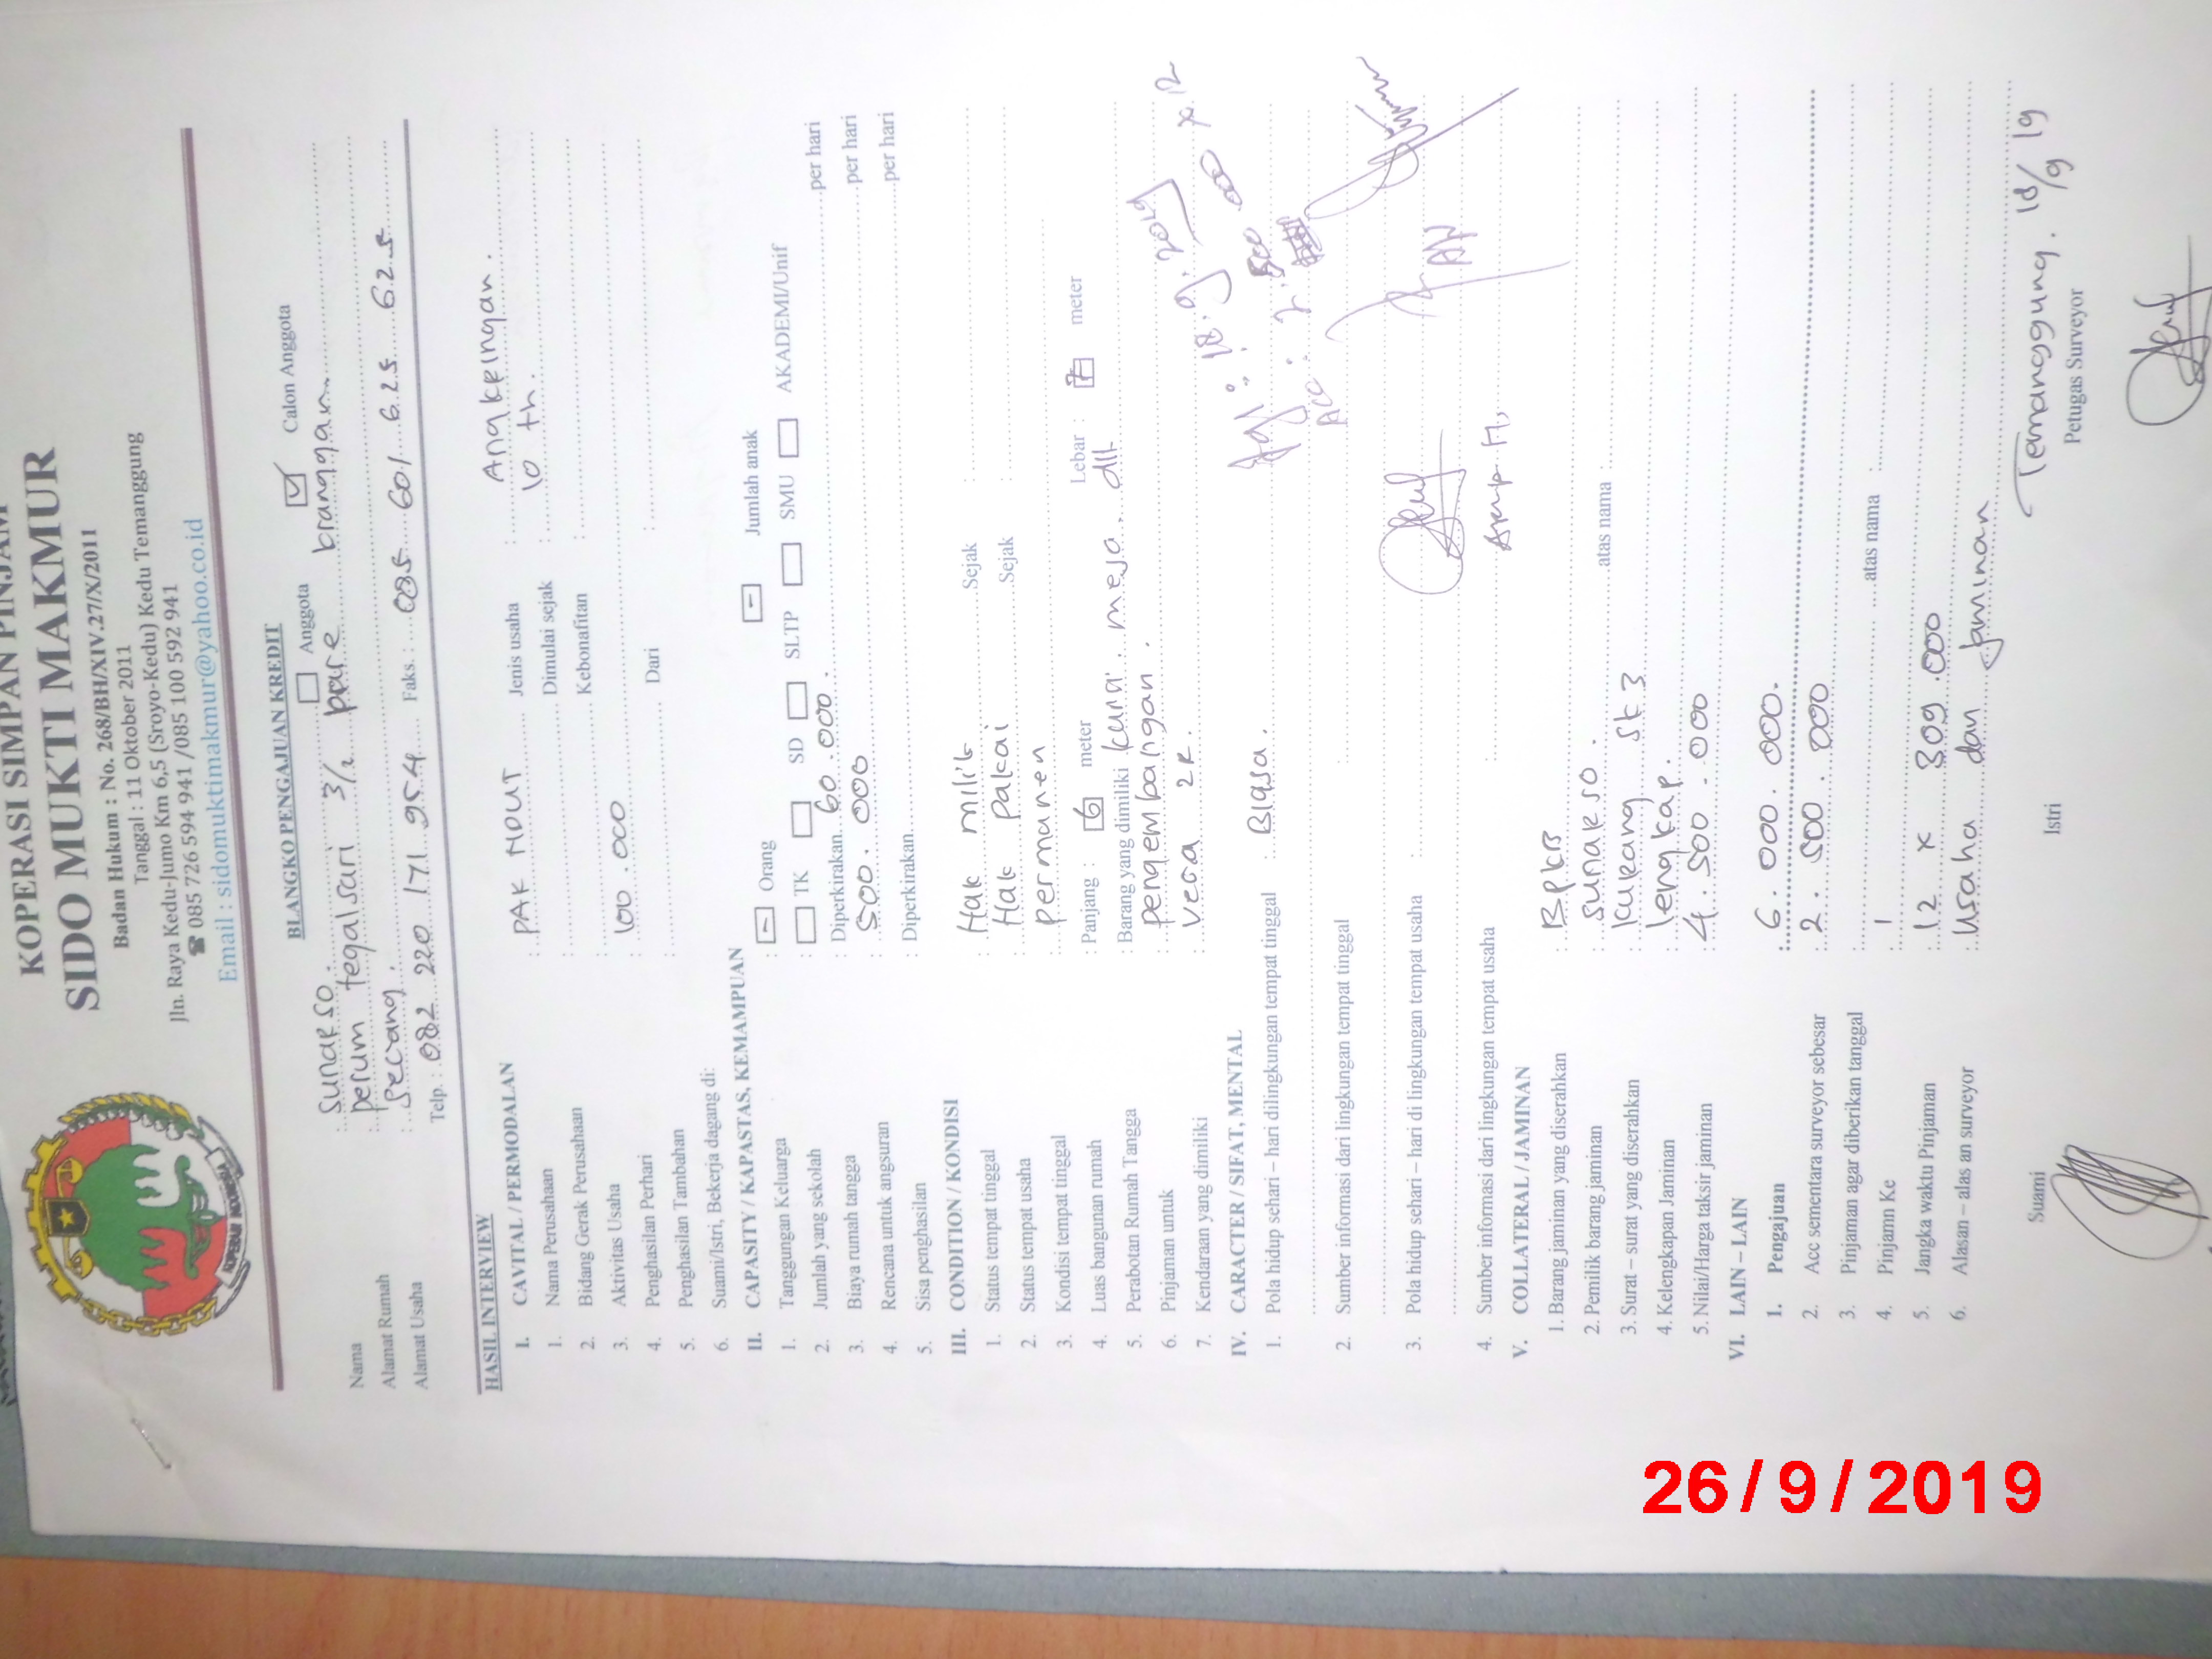 KOPERASI SIMPAN PINJAM
SIDO MUKTI MAKMUR
Badan Hukum : No. 268/BH/XIV.27/X/2011
Tanggal : 11 Oktober 2011
Jln. Raya Kedu-Jumo Km 6,5 (Sroyo-Kedu) Kedu Temanggung
☎ 085 726 594 941 /085 100 592 941
Email : sidomuktimakmur@yahoo.co.id
KOPERASI INDONESIA
BLANGKO PENGAJUAN KREDIT
Anggota ☑ Calon Anggota
Nama : Sunarso.
Alamat Rumah : perum tegalsari 3/2 pare branggan
Alamat Usaha : Secang.
Telp. : 082 220 171 954 Faks. : 085 601 625 625
HASIL INTERVIEW
I. CAVITAL / PERMODALAN
1. Nama Perusahaan : PAK NDUT Jenis usaha : Angkringan.
2. Bidang Gerak Perusahaan : Dimulai sejak : 10 th.
3. Aktivitas Usaha : Kebonafitan :
4. Penghasilan Perhari : 100.000
5. Penghasilan Tambahan : Dari :
6. Suami/Istri, Bekerja dagang di:
II. CAPASITY / KAPASTAS, KEMAMPUAN
1. Tanggungan Keluarga : - Orang - Jumlah anak
2. Jumlah yang sekolah : TK SD SLTP SMU AKADEMI/Unif
3. Biaya rumah tangga : Diperkirakan 60.000. per hari
4. Rencana untuk angsuran : 500.000 per hari
5. Sisa penghasilan : Diperkirakan per hari
III. CONDITION / KONDISI
1. Status tempat tinggal : Hak milik Sejak :
2. Status tempat usaha : Hak pakai Sejak :
3. Kondisi tempat tinggal : permanen
4. Luas bangunan rumah : Panjang : 6 meter Lebar : 7 meter
5. Perabotan Rumah Tangga : Barang yang dimiliki kursi. meja. dll
6. Pinjaman untuk : pengembangan.
7. Kendaraan yang dimiliki : vega 2R.
Tgl : 18.9.2019
Acc : 2.500.000 x 12
IV. CARACTER / SIFAT, MENTAL
1. Pola hidup sehari – hari dilingkungan tempat tinggal : Biasa.
2. Sumber informasi dari lingkungan tempat tinggal :
3. Pola hidup sehari – hari di lingkungan tempat usaha :
4. Sumber informasi dari lingkungan tempat usaha :
V. COLLATERAL / JAMINAN
1. Barang jaminan yang diserahkan : BPKB
2. Pemilik barang jaminan : Sunarso. atas nama :
3. Surat – surat yang diserahkan : kurang St 3
4. Kelengkapan Jaminan : lengkap.
5. Nilai/Harga taksir jaminan : 4.500.000
VI. LAIN – LAIN
1. Pengajuan : 6.000.000.
2. Acc sementara surveyor sebesar : 2.500.000
3. Pinjaman agar diberikan tanggal :
4. Pinjamn Ke : 1 atas nama :
5. Jangka waktu Pinjaman : 12 x 309.000
6. Alasan – alas an surveyor : Usaha dan Jaminan
Temanggung. 18/9 19
Suami Istri Petugas Surveyor
26/9/2019